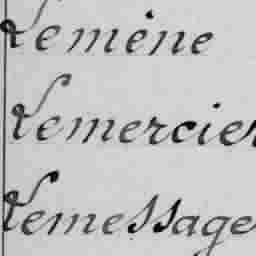 Lemène
Lemercier
Lemessage